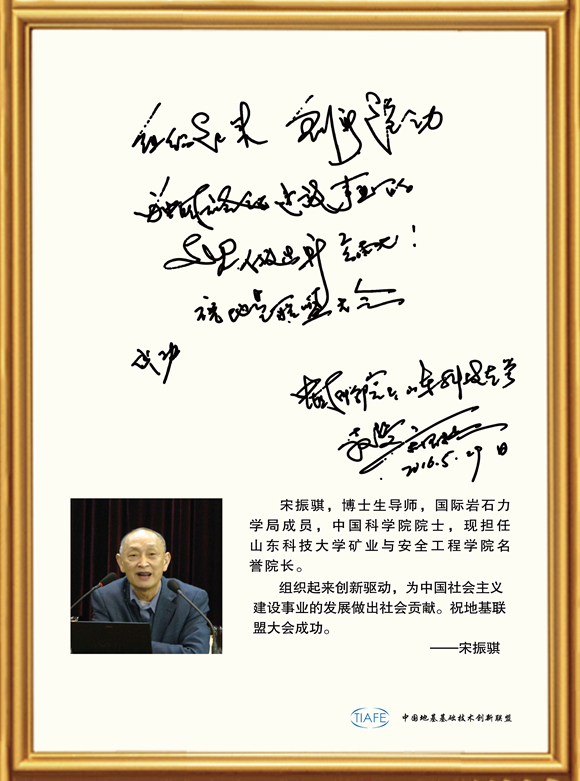 组织起来 创新驱动
建设事业的
发展做出 贡献！
祝地基联盟大会
成功
中国科学院院士山东科技大学
教授 宋振骐
2016.5.29日
宋振骐，博士生导师，国际岩石力
学局成员，中国科学院院士，现担任
山东科技大学矿业与安全工程学院名
誉院长。
组织起来创新驱动，为中国社会主义
建设事业的发展做出社会贡献。祝地基联
盟大会成功。
——宋振骐
TIAFE 中国地基基础技术创新联盟